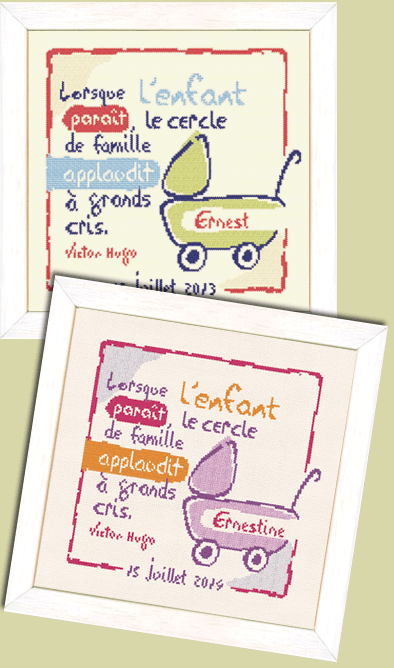 Lorsque l'enfant
paraît, le cercle
de famille
applaudit
à grands
cris.
Ernest
Victor Hugo
Juillet 2013
Lorsque l'enfant
paraît, le cercle
de famille
applaudit
à grands
cris.
Ernestine
Victor Hugo
15 Juillet 2014